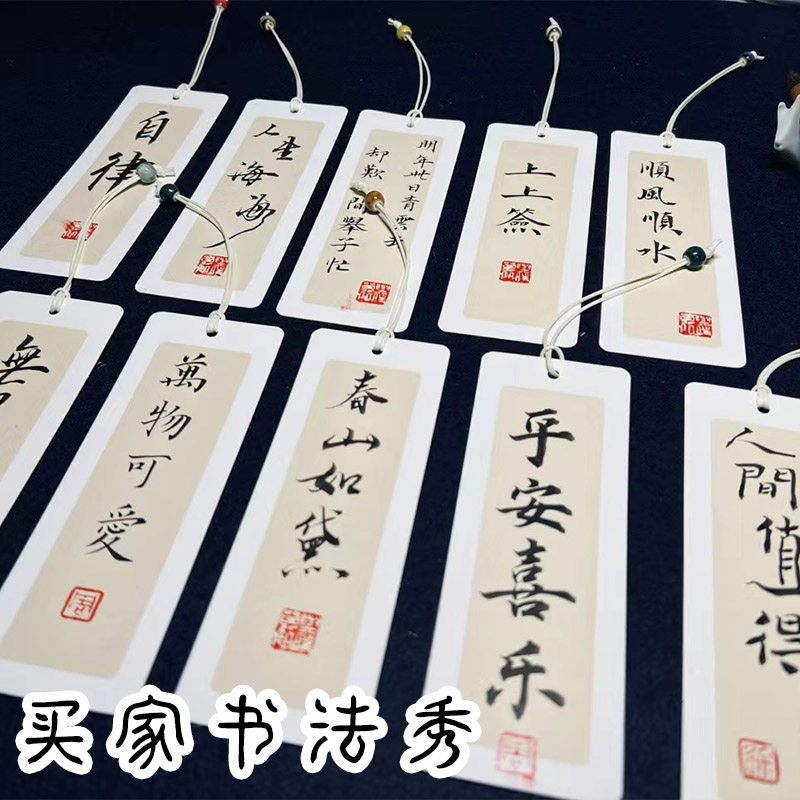 自律
人生海海
明年此日青雲
却歎間舉子忙
上上簽
順風順水
無
萬物可愛
春山如黛
平安喜乐
人間值得
买家书法秀